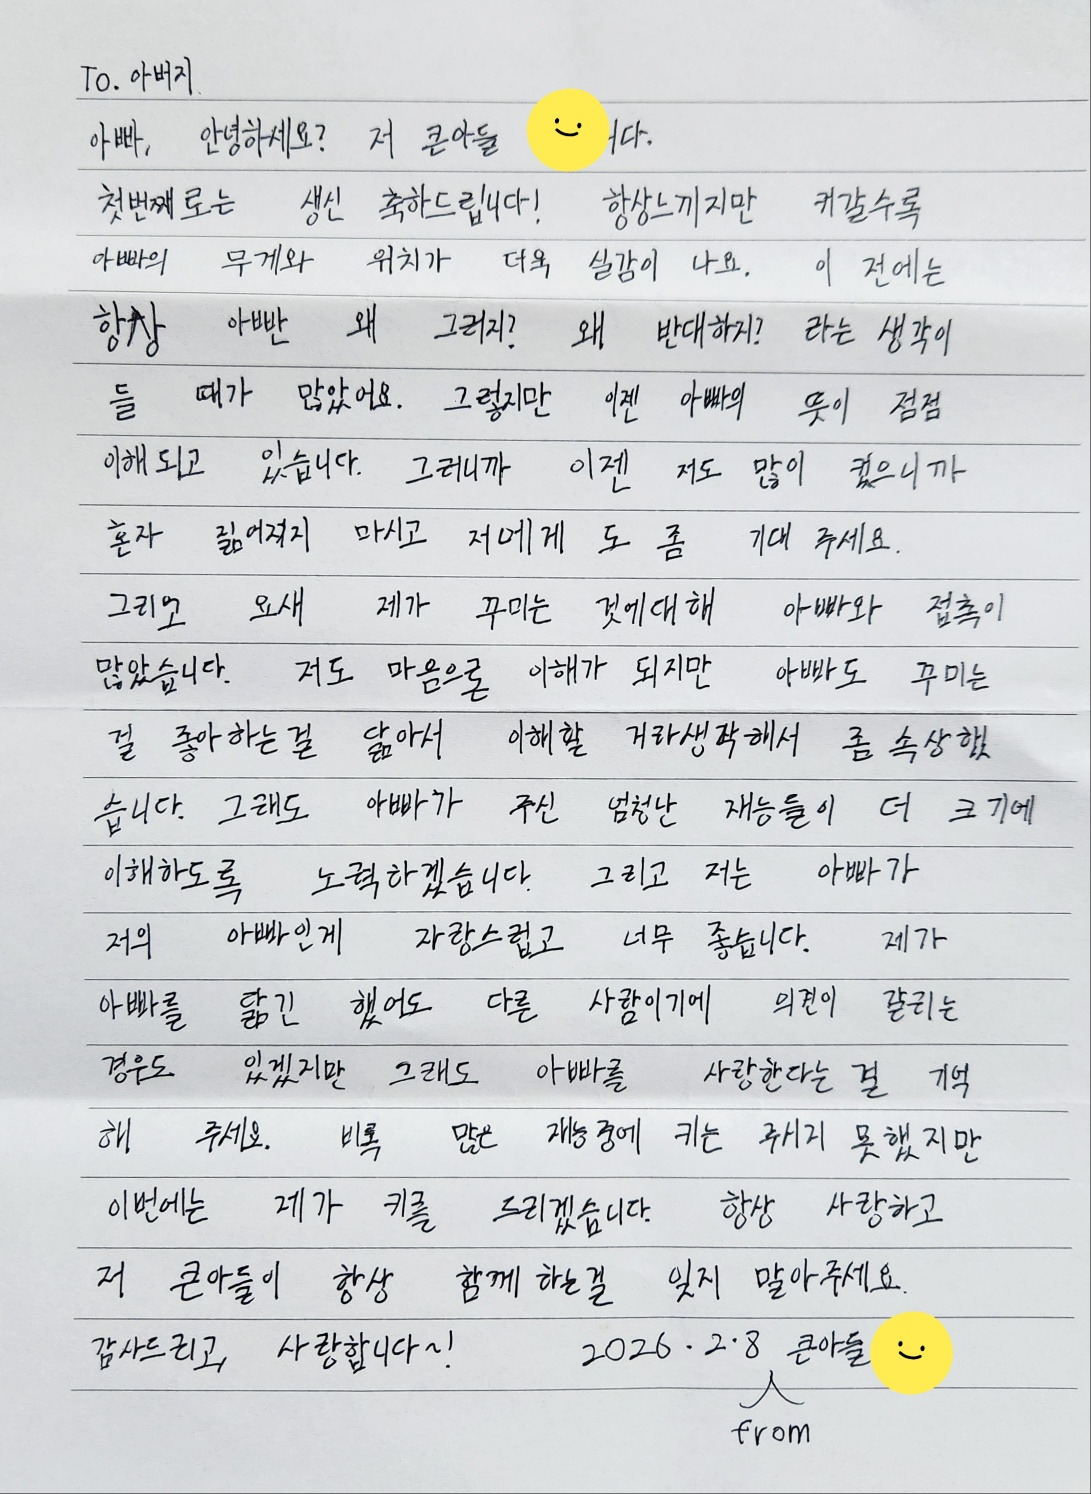 To. 아버지
아빠, 안녕하세요? 저 큰아들 니다.
첫번째로는 생신 축하드립니다! 항상느끼지만 커갈수록
아빠의 무게와 위치가 더욱 실감이 나요. 이 전에는
항상 아빤 왜 그러지? 왜 반대하지? 라는 생각이
들 때가 많았어요. 그렇지만 이젠 아빠의 뜻이 점점
이해되고 있습니다. 그러니까 이젠 저도 많이 컸으니까
혼자 짊어져지 마시고 저에게 도 좀 기대 주세요.
그리고 요새 제가 꾸미는 것에대해 아빠와 접촉이
많았습니다. 저도 마음으론 이해가 되지만 아빠도 꾸미는
걸 좋아하는걸 닮아서 이해할 거라생각해서 좀 속상했
습니다. 그래도 아빠가 주신 엄청난 재능들이 더 크기에
이해하도록 노력하겠습니다. 그리고 저는 아빠가
저의 아빠인게 자랑스럽고 너무 좋습니다. 제가
아빠를 닮긴 했어도 다른 사람이기에 의견이 갈리는
경우도 있겠지만 그래도 아빠를 사랑한다는 걸 기억
해 주세요. 비록 많은 재능중에 키는 주시지 못했지만
이번에는 제가 키를 드리겠습니다. 항상 사랑하고
저 큰아들이 항상 함께 하는걸 잊지 말아주세요.
감사드리고, 사랑합니다~! 2026.2.8 큰아들
from